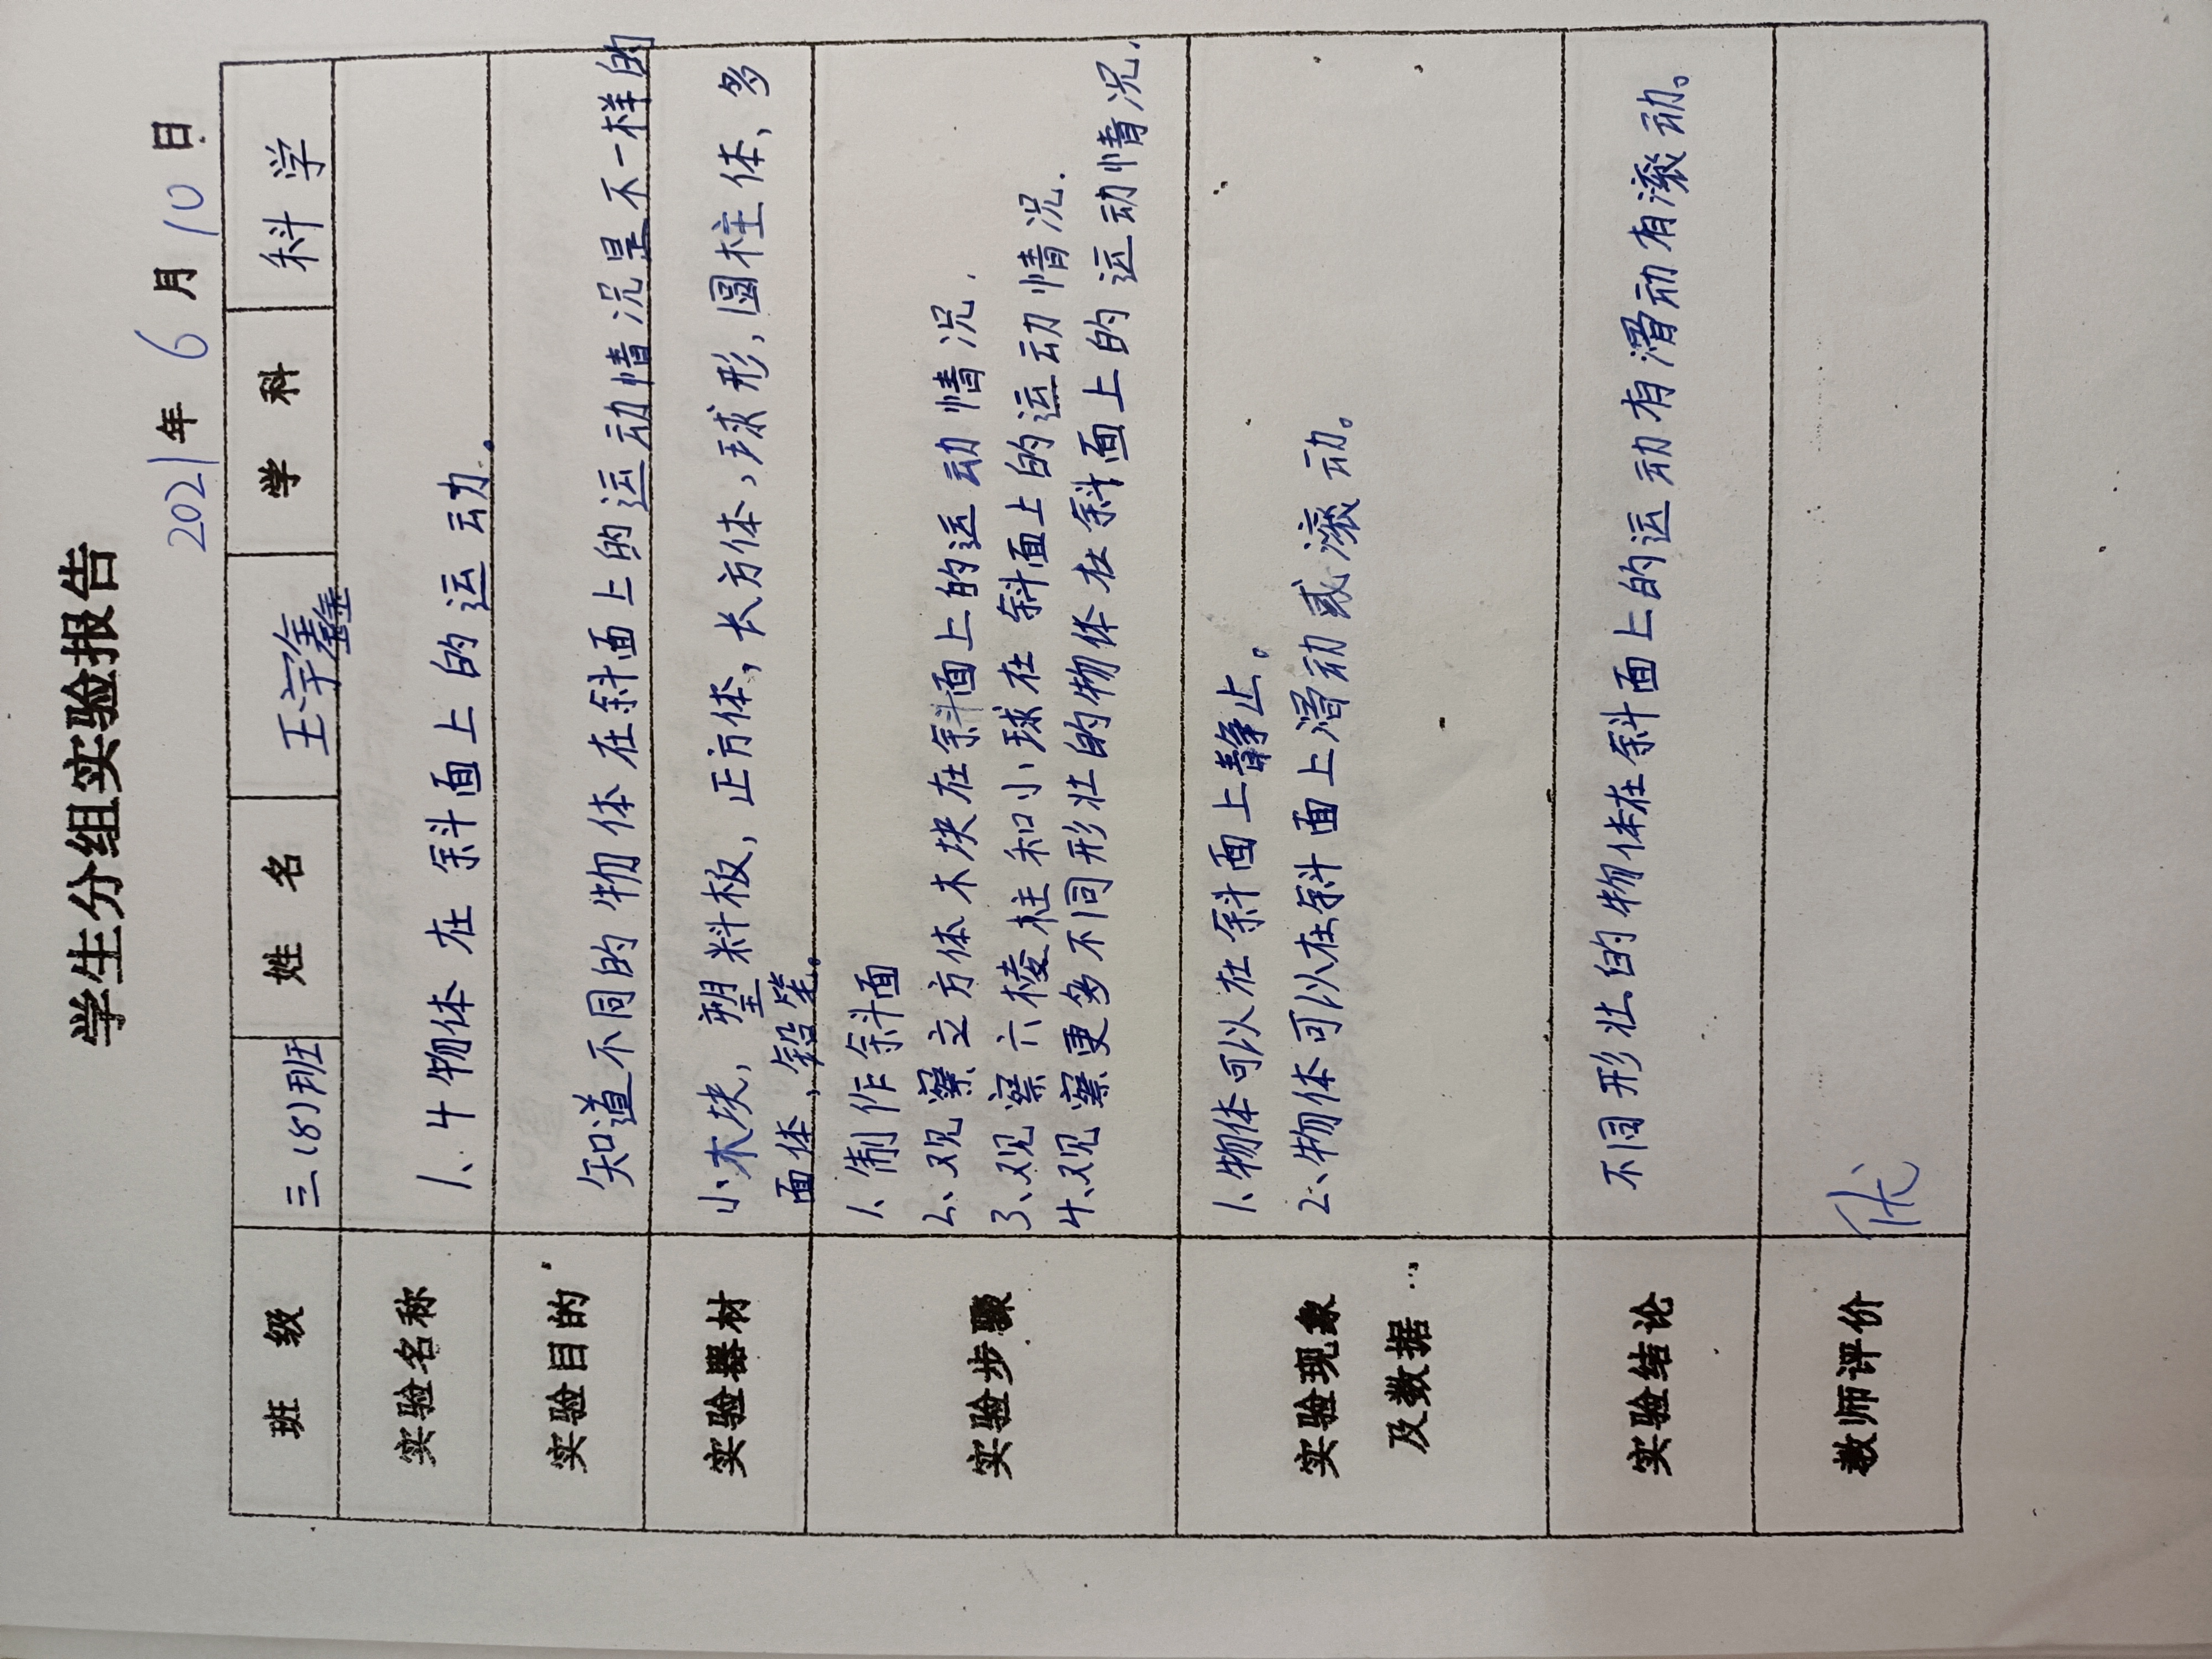 学生分组实验报告
2021年 6 月 10 日
班 级 三(8)班 姓 名 王宇鑫 学 科 科学
实验名称 1、4物体在斜面上的运动。
实验目的 知道不同的物体在斜面上的运动情况是不一样的
实验器材 小木块,塑料板,正方体,长方体,球形,圆柱体,多
面体,铅笔。
实验步骤 1、制作斜面
2、观察立方体木块在斜面上的运动情况.
3、观察六棱柱和小球在斜面上的运动情况.
4、观察更多不同形壮的物体在斜面上的运动情况.
实验现象 1、物体可以在斜面上静止。
及数据 2、物体可以在斜面上滑动或滚动。
实验结论 不同形壮的物体在斜面上的运动有滑动有滚动。
教师评价 优